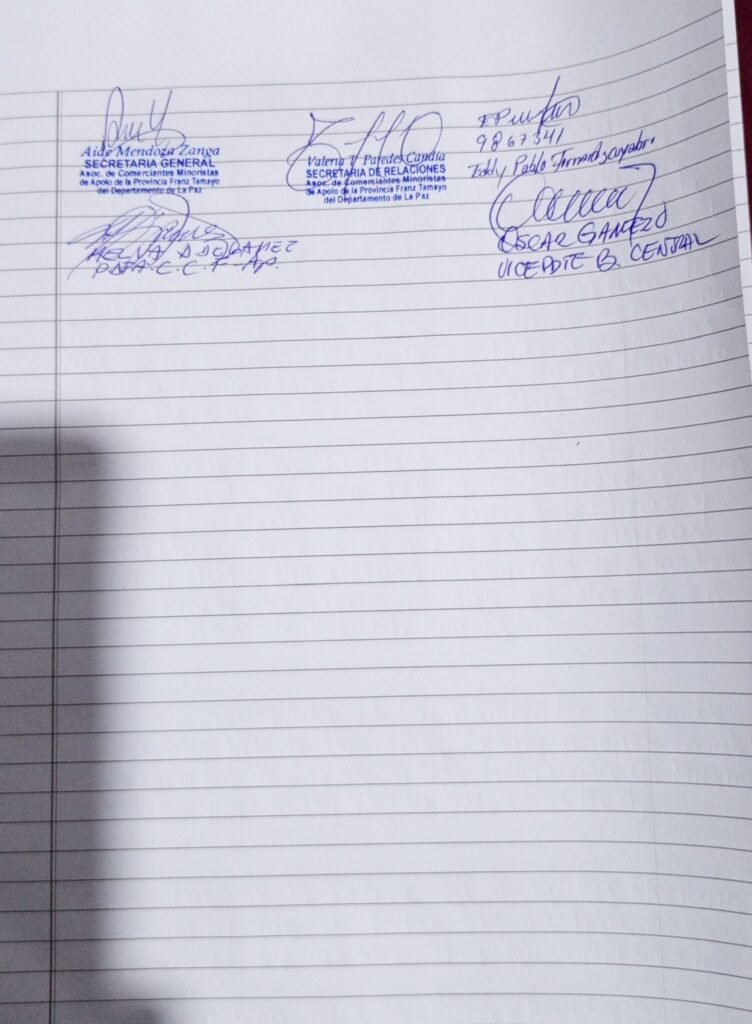 Aide Mendoza Zanga
SECRETARIA GENERAL
Asoc. de Comerciantes Minoristas
de Apolo de la Provincia Franz Tamayo
del Departamento de La Paz
Valeria Y. Paredes Candia
SECRETARIA DE RELACIONES
Asoc. de Comerciantes Minoristas
de Apolo de la Provincia Franz Tamayo
del Departamento de La Paz
9867341
Eddy Pablo
OSCAR
VICEPDTE B. CENTRAL
C.C.F-AP.